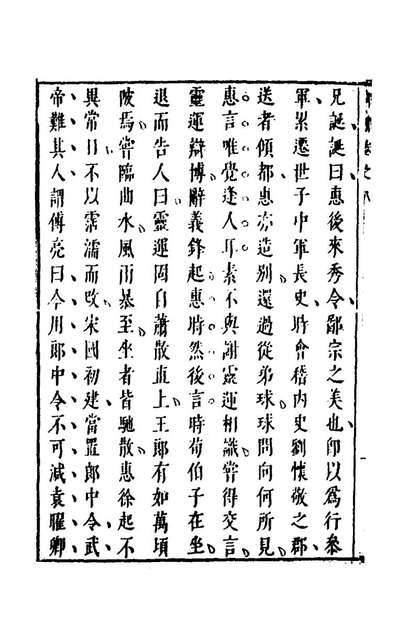 兄誕誕曰惠後來秀令鄙宗之美也卽以爲行參
軍累遷世子中軍長史時會稽內史劉懷敬之郡
送者傾都惠亦造別還過從弟球球問向何所見
惠言唯覺逢人耳素不與謝靈運相識嘗得交言
靈運辯博辭義鋒起惠時然後言時荀伯子在坐
退而告人曰靈運固自蕭散直上王郎有如萬頃
陂焉嘗臨曲水風雨暴至坐者皆馳散惠徐起不
異常日不以霑濡而改宋國初建當置郎中令武
帝難其人謂傅亮曰今用郎中令不可減袁曜卿